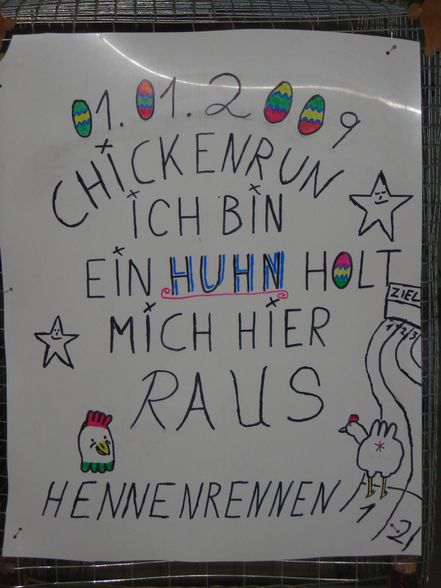 01.01.2009
CHICKENRUN
ICH BIN
EIN HUHN HOLT
MICH HIER
RAUS
HENNENRENNEN
ZIEL
1 2 3
1 2